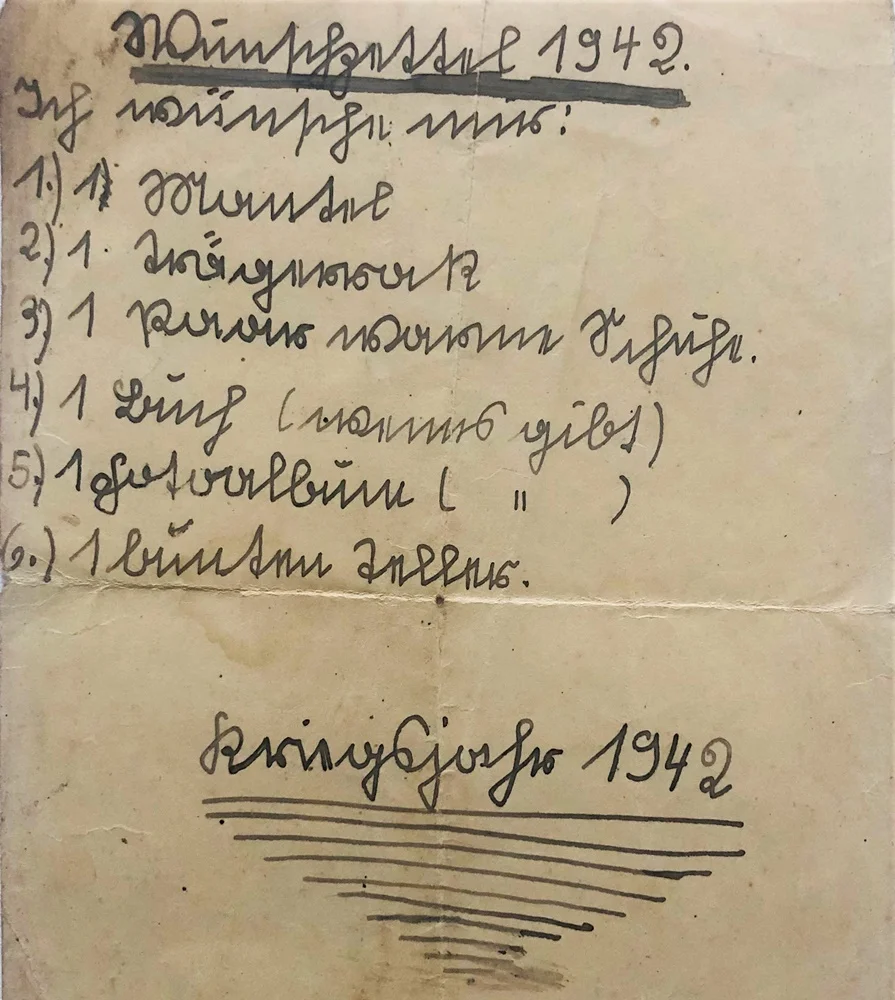 Wunschzettel 1942.
Ich wünsche mir:
1.) 1 Mantel
2.) 1. Trägerrok
3.) 1 Paar warme Schuhe.
4.) 1 Buch (wenns gibt)
5.) 1 Fotoalbum ( " )
6.) 1 bunten Teller.
Kriegsjahr 1942